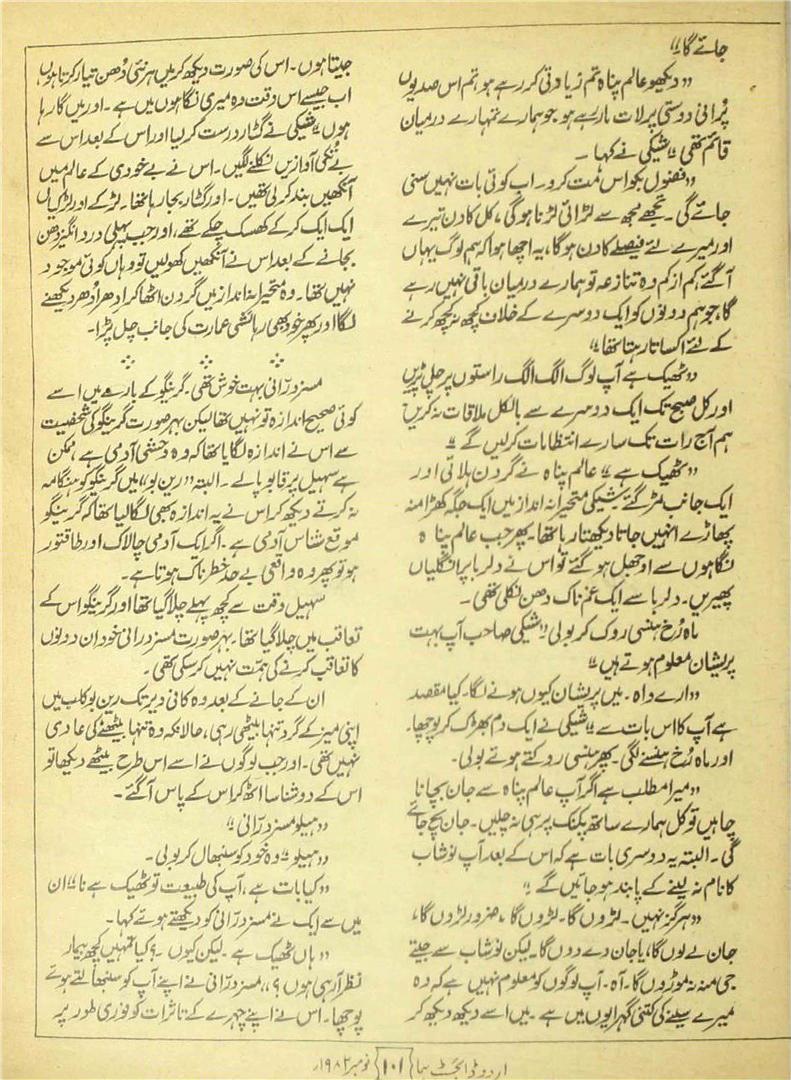 جائے گا"
"دیکھو عالم پناہ تم زیادتی کر رہے ہو تم اس صدیوں
پرانی دوستی پر لات مار رہے ہو جو ہمارے تمہارے درمیان
قائم تھی" شیکی نے کہا۔
"فضول بکواس مت کرو۔ اب کوئی بات نہیں سنی
جائے گی۔ تجھے مجھ سے لڑائی لڑنا ہوگی، کل کا دن تیرے
اور میرے لئے فیصلے کا دن ہوگا، یہ اچھا ہوا کہ ہم لوگ یہاں
آگئے کم از کم وہ تنازعہ تو ہمارے درمیان باقی نہیں رہے
گا، جو ہم دونوں کو ایک دوسرے کے خلاف کچھ نہ کچھ کرنے
کے لئے اکساتا رہتا تھا"
"ٹھیک ہے آپ لوگ الگ الگ راستوں پر چل پڑیں
اور کل صبح تک ایک دوسرے سے بالکل ملاقات نہ کریں
ہم آج رات تک سارے انتظامات کرلیں گے"
"ٹھیک ہے" عالم پناہ نے گردن ہلائی اور
ایک جانب مڑ گئے شیکی متحیرانہ انداز میں ایک جگہ کھڑا منہ
پھاڑے انہیں جاتا دیکھتا رہا تھا۔ پھر جب عالم پناہ
نگاہوں سے اوجھل ہوگئے تو اس نے دلربا پر انگلیاں
پھیریں۔ دلربا سے ایک غم ناک دھن نکلی تھی۔
ماہ رُخ ہنسی روک کر بولی "شیکی صاحب آپ بہت
پریشان معلوم ہوتے ہیں"
"ارے واہ۔ میں پریشان کیوں ہونے لگا۔ کیا مقصد
ہے آپ کا اس بات سے" شیکی نے ایک دم بھڑک کر پوچھا۔
اور ماہ رُخ ہنسنے لگی۔ پھر ہنسی روکتے ہوئے بولی۔
"میرا مطلب ہے اگر آپ عالم پناہ سے جان بچانا
چاہیں تو کل ہمارے ساتھ پکنک پر ہی نہ چلیں۔ جان بچ جائے
گی۔ البتہ یہ دوسری بات ہے کہ اس کے بعد آپ نوشاب
کا نام نہ لینے کے پابند ہو جائیں گے"
"ہرگز نہیں۔ لڑوں گا۔ لڑوں گا، ضرور لڑوں گا،
جان لے لوں گا، یا جان دے دوں گا۔ لیکن نوشاب سے جیتے
جی منہ نہ موڑوں گا۔ آہ۔ آپ لوگوں کو معلوم نہیں ہے کہ وہ
میرے سینے کی کتنی گہرائیوں میں ہے۔ میں اسے دیکھ دیکھ کر
جیتا ہوں۔ اس کی صورت دیکھ کر میں ہر نئی دُھن تیار کرتا ہوں
اب جیسے اس وقت وہ میری نگاہوں میں ہے۔ اور میں گا رہا
ہوں" شیکی نے گٹار درست کر لیا اور اس کے بعد اس سے
بے تکی آوازیں نکلنے لگیں۔ اس نے بے خودی کے عالم میں
آنکھیں بند کرلی تھیں۔ اور گٹار بجا رہا تھا۔ لڑکے اور لڑکیاں
ایک ایک کرکے کھسک چکے تھے، اور جب پہلی درد انگیز دھن
بجانے کے بعد اس نے آنکھیں کھولیں تو وہاں کوئی موجود
نہیں تھا۔ وہ متحیرانہ انداز میں گردن اٹھا کر ادھر اُدھر دیکھنے
لگا اور پھر خود بھی رہائشی عمارت کی جانب چل پڑا۔
مسز درّانی بہت خوش تھی۔ گرینگو کے بارے میں اسے
کوئی صحیح اندازہ تو نہیں تھا لیکن بہرصورت گرینگو کی شخصیت
سے اس نے اندازہ لگایا تھا کہ وہ وحشی آدمی ہے ممکن
ہے سہیل پر قابو پالے۔ البتہ "رین بو" میں گرینگو کو ہنگامہ
نہ کرتے دیکھ کر اس نے یہ اندازہ بھی لگا لیا تھا کہ گرینگو
موقع شناس آدمی ہے۔ اگر ایک آدمی چالاک اور طاقتور
ہو تو پھر وہ واقعی بے حد خطرناک ہوتا ہے۔
سہیل وقت سے کچھ پہلے چلا گیا تھا اور گرینگو اس کے
تعاقب میں چلا گیا تھا۔ بہرصورت مسز درانی خود ان دونوں
کا تعاقب کرنے کی ہمت نہیں کرسکی تھی۔
ان کے جانے کے بعد وہ کافی دیر تک رین بو کلب میں
اپنی میز کے گرد تنہا بیٹھی رہی، حالانکہ وہ تنہا بیٹھنے کی عادی
نہیں تھی۔ اور جب لوگوں نے اسے اس طرح بیٹھے دیکھا تو
اس کے دو شناسا اٹھ کر اس کے پاس آگئے۔
"ہیلو مسز درّانی"
"ہیلو" وہ خود کو سنبھال کر بولی۔
"کیا بات ہے، آپ کی طبیعت تو ٹھیک ہے نا" ان
میں سے ایک نے مسز درّانی کو دیکھتے ہوئے کہا۔
"ہاں ٹھیک ہے۔ لیکن کیوں۔؟ کیا تمہیں کچھ بیمار
نظر آرہی ہوں؟" مسز درّانی نے اپنے آپ کو سنبھالتے ہوئے
پوچھا۔ اس نے اپنے چہرے کے تاثرات کو فوری طور پر
اردو ڈائجسٹ ہما {۱۰۱} نومبر ۱۹۸۲ء